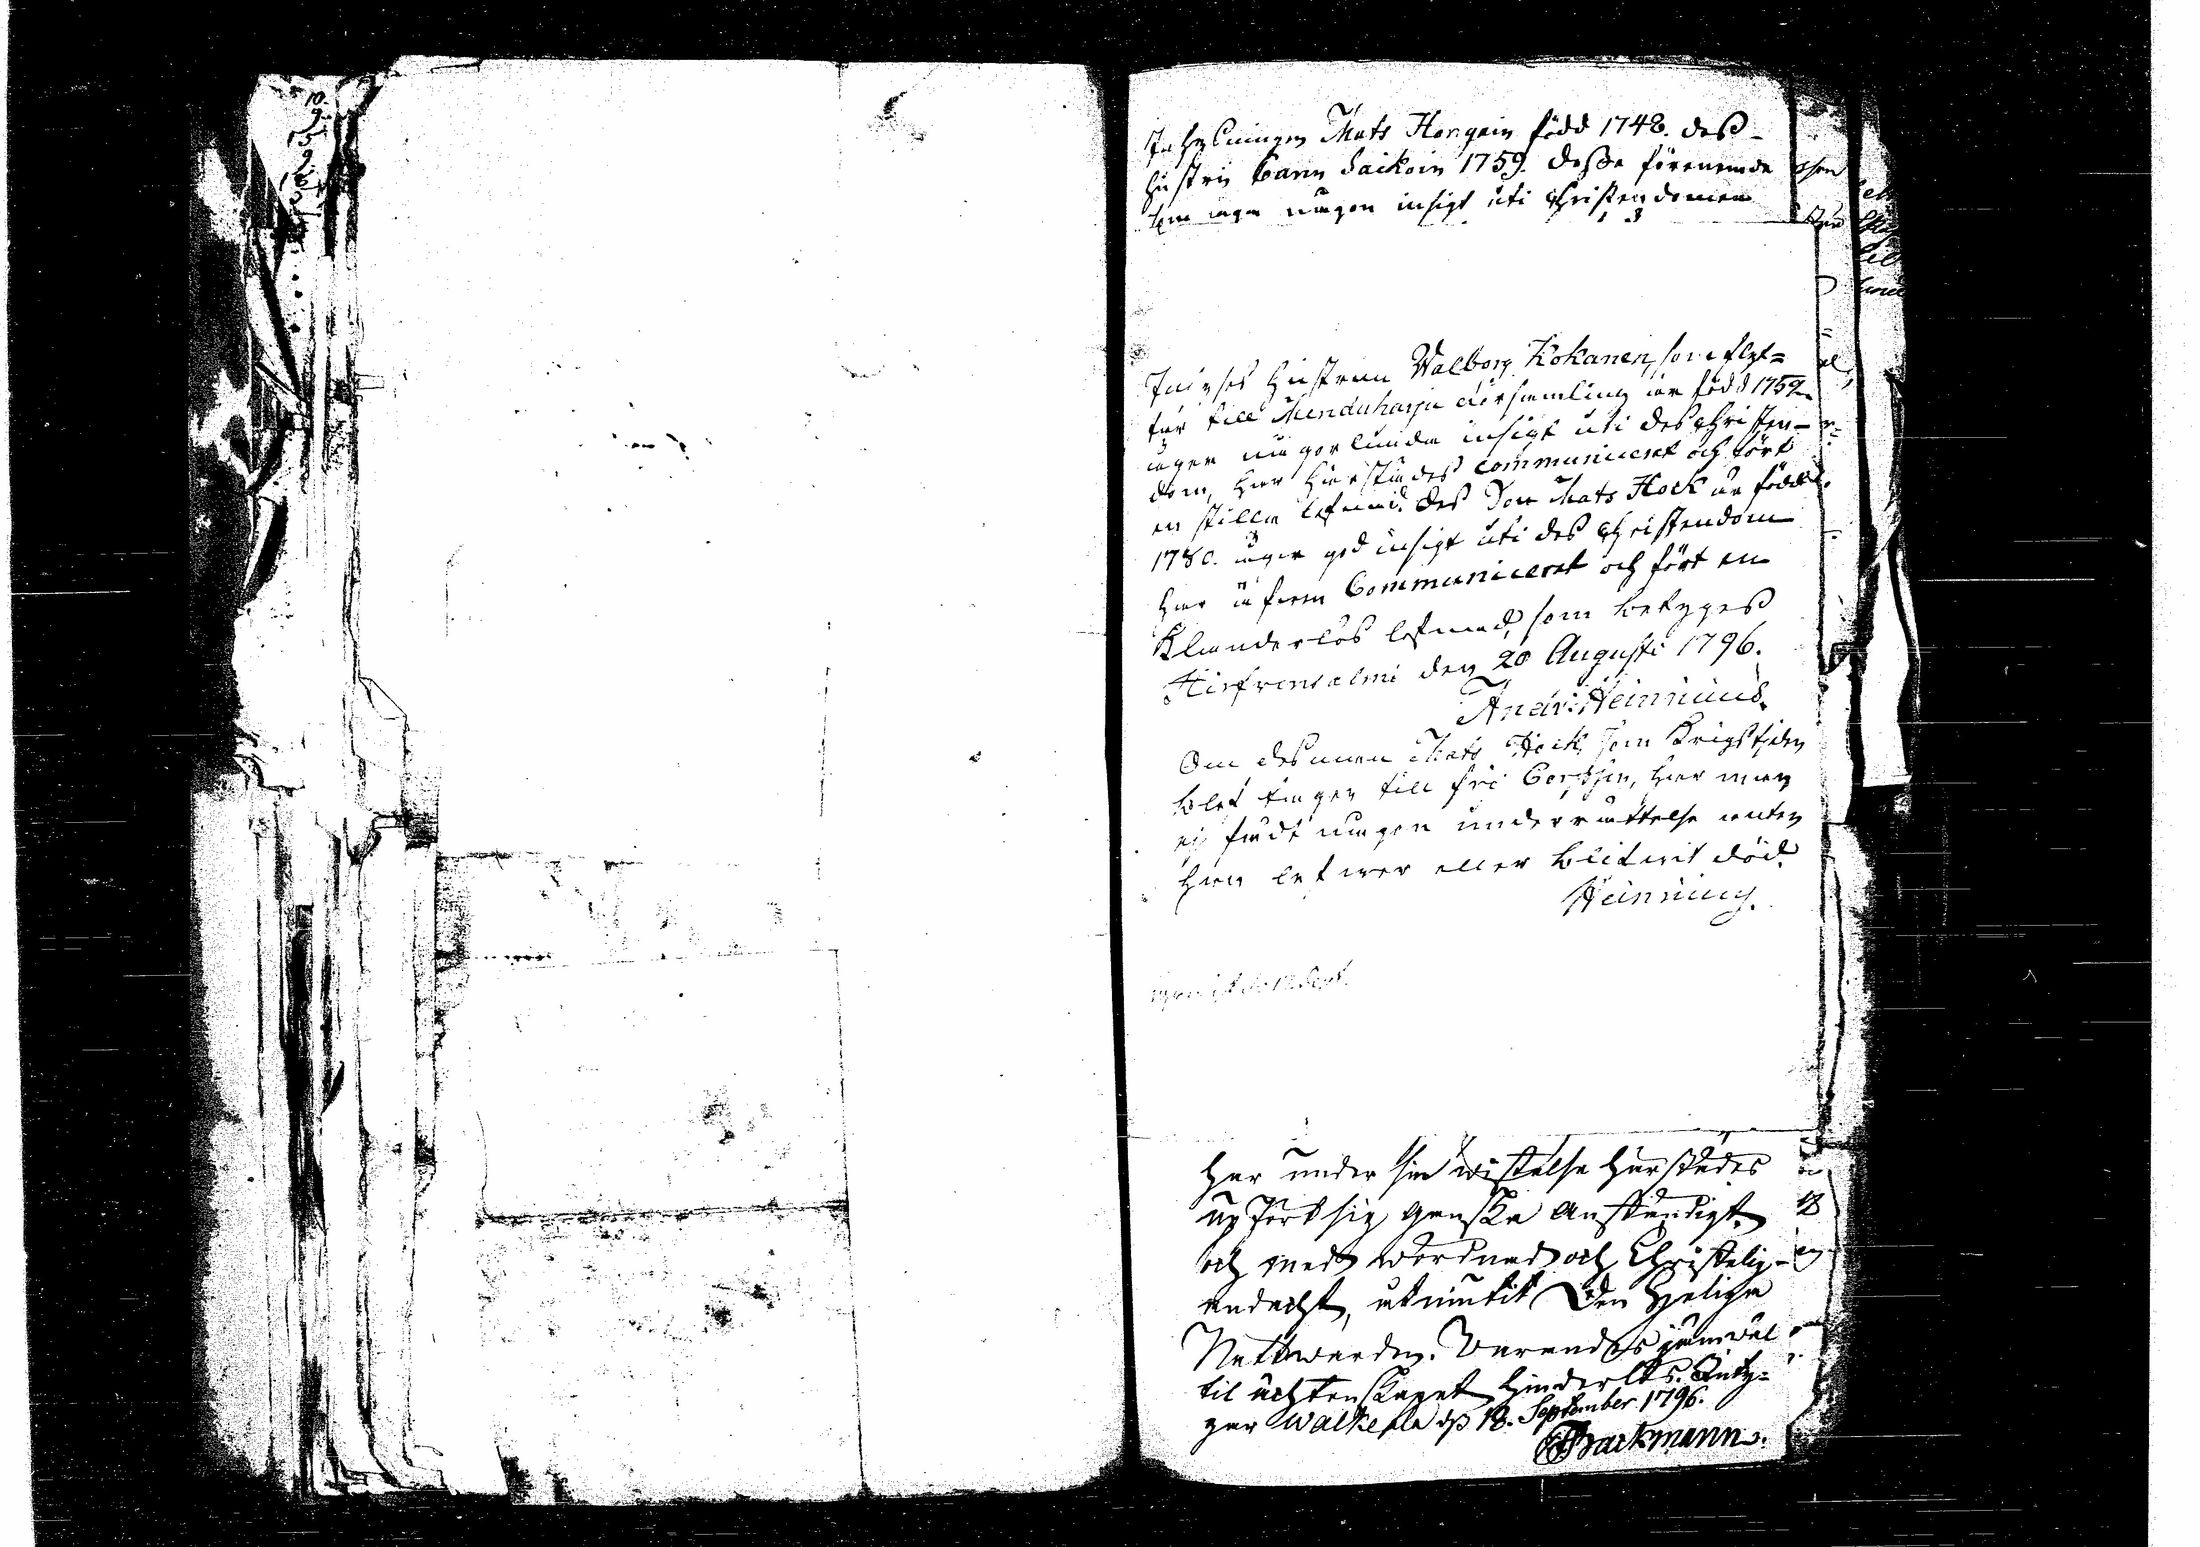 10.
9.
15
9.
Inhysningen Mats Horgain född 1748. dess
hustru Carin Saikoin 1759. desse förenemde
ega någon insigt uti Christendomen
Inhyses hustrun Walborg Kokanen, som flyt=
tar till Menduharju församling är född 1759
äger någorlunda insigt uti des Christen-
dom, har härstädes communicerat och fört
en stilla lefnad. Des Son Mats Hock är född
1780. äger god insigt uti des Christendom
har äfven Communicerat och fört en
Klanderlös lefnad, som betyges
Hirfvensalmi den 20 Augusti 1796.
And: Heinricius.
Om des man Mats Hock, som Krigstiden
blef tagen till fri Corpsen, har man
ej fådt någon underrättelse antingen
han lefwer eller blifwit död.
Heinricius.
har under sin wistelse härstädes
upfört sig ganska anständigt
och med wördnad och Christelig
andacht, utnyttit Den Heliga
Nattwarden. Varandes jämwäl
til ächtenskapet hinderlös. Inty=
gar Walkeala d. 18. September 1796.
Backmann.